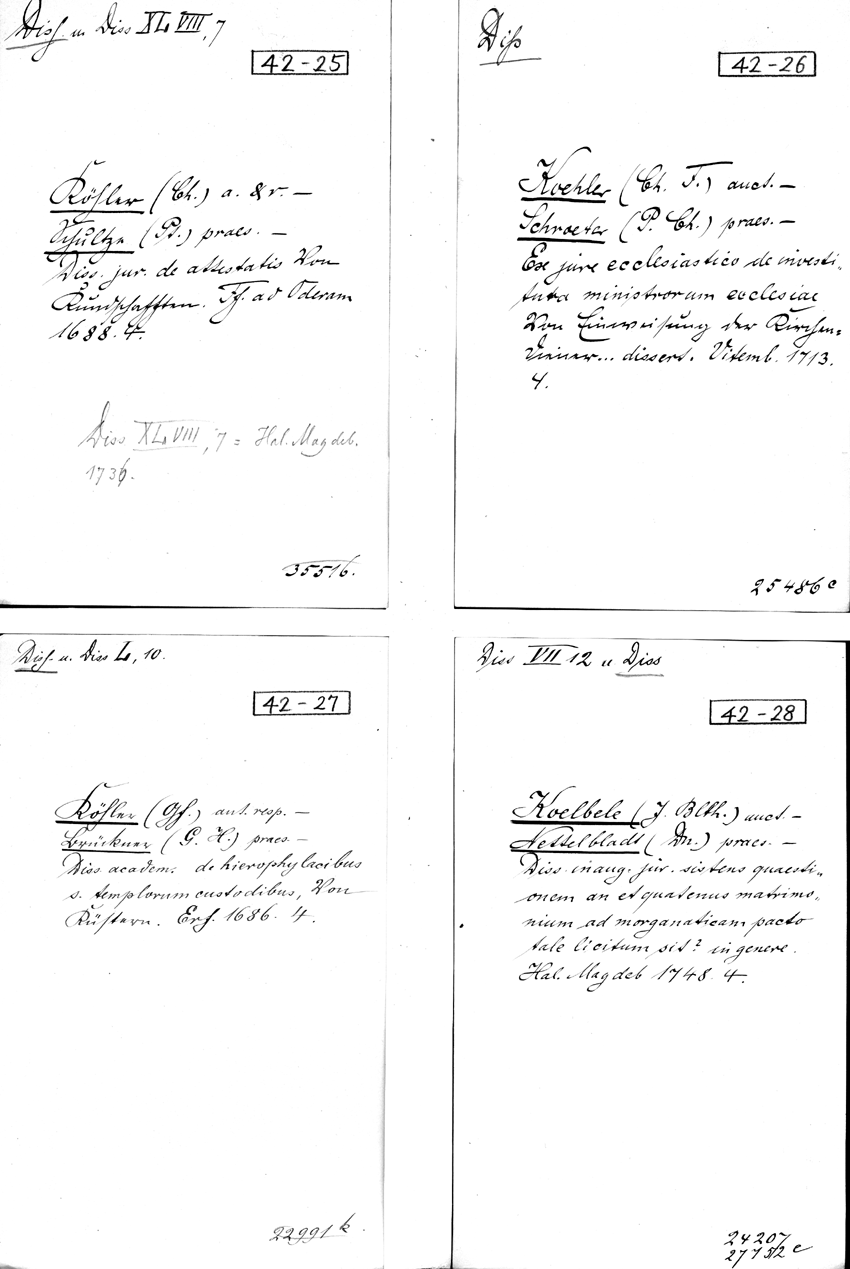 Diss. u Diss XLVIII, 7
42-25
Köhler (Ch.) a. & r. —
Schultze (Pt.) praes. —
Diss. jur. de attestatis Von
Kundschafften. Ff. ad Oderam
1688. 4.
Diss XLVIII, 7 = Hal. Magdeb.
1736.
35516.
Diss
42-26
Koehler (Ch. F.) auct. —
Schroeter (P. Ch.) praes. —
Ex jure ecclesiastico de investi„
tura ministrorum ecclesiae
Von Einweisung der Kirchen=
diener... dissert. Vitemb. 1713.
4.
25486 c
Diss. u. Diss L, 10.
42-27
Köhler (Gf.) aut. resp. —
Brückner (G. H.) praes —
Diss. academ. de hierophylacibus
s. templorum custodibus, Von
Küstern. Erf. 1686. 4.
22991 k
Diss VII 12 u Diss
42-28
Koelbele (J. Blth.) auct. —
Nettelbladt (Dn.) praes. —
Diss. inaug. jur. sistens quaesti„
onem an et quatenus matrimo„
nium ad morganaticam pacto
tale licitum sit? in genere.
Hal. Magdeb 1748. 4.
24207
27752 c